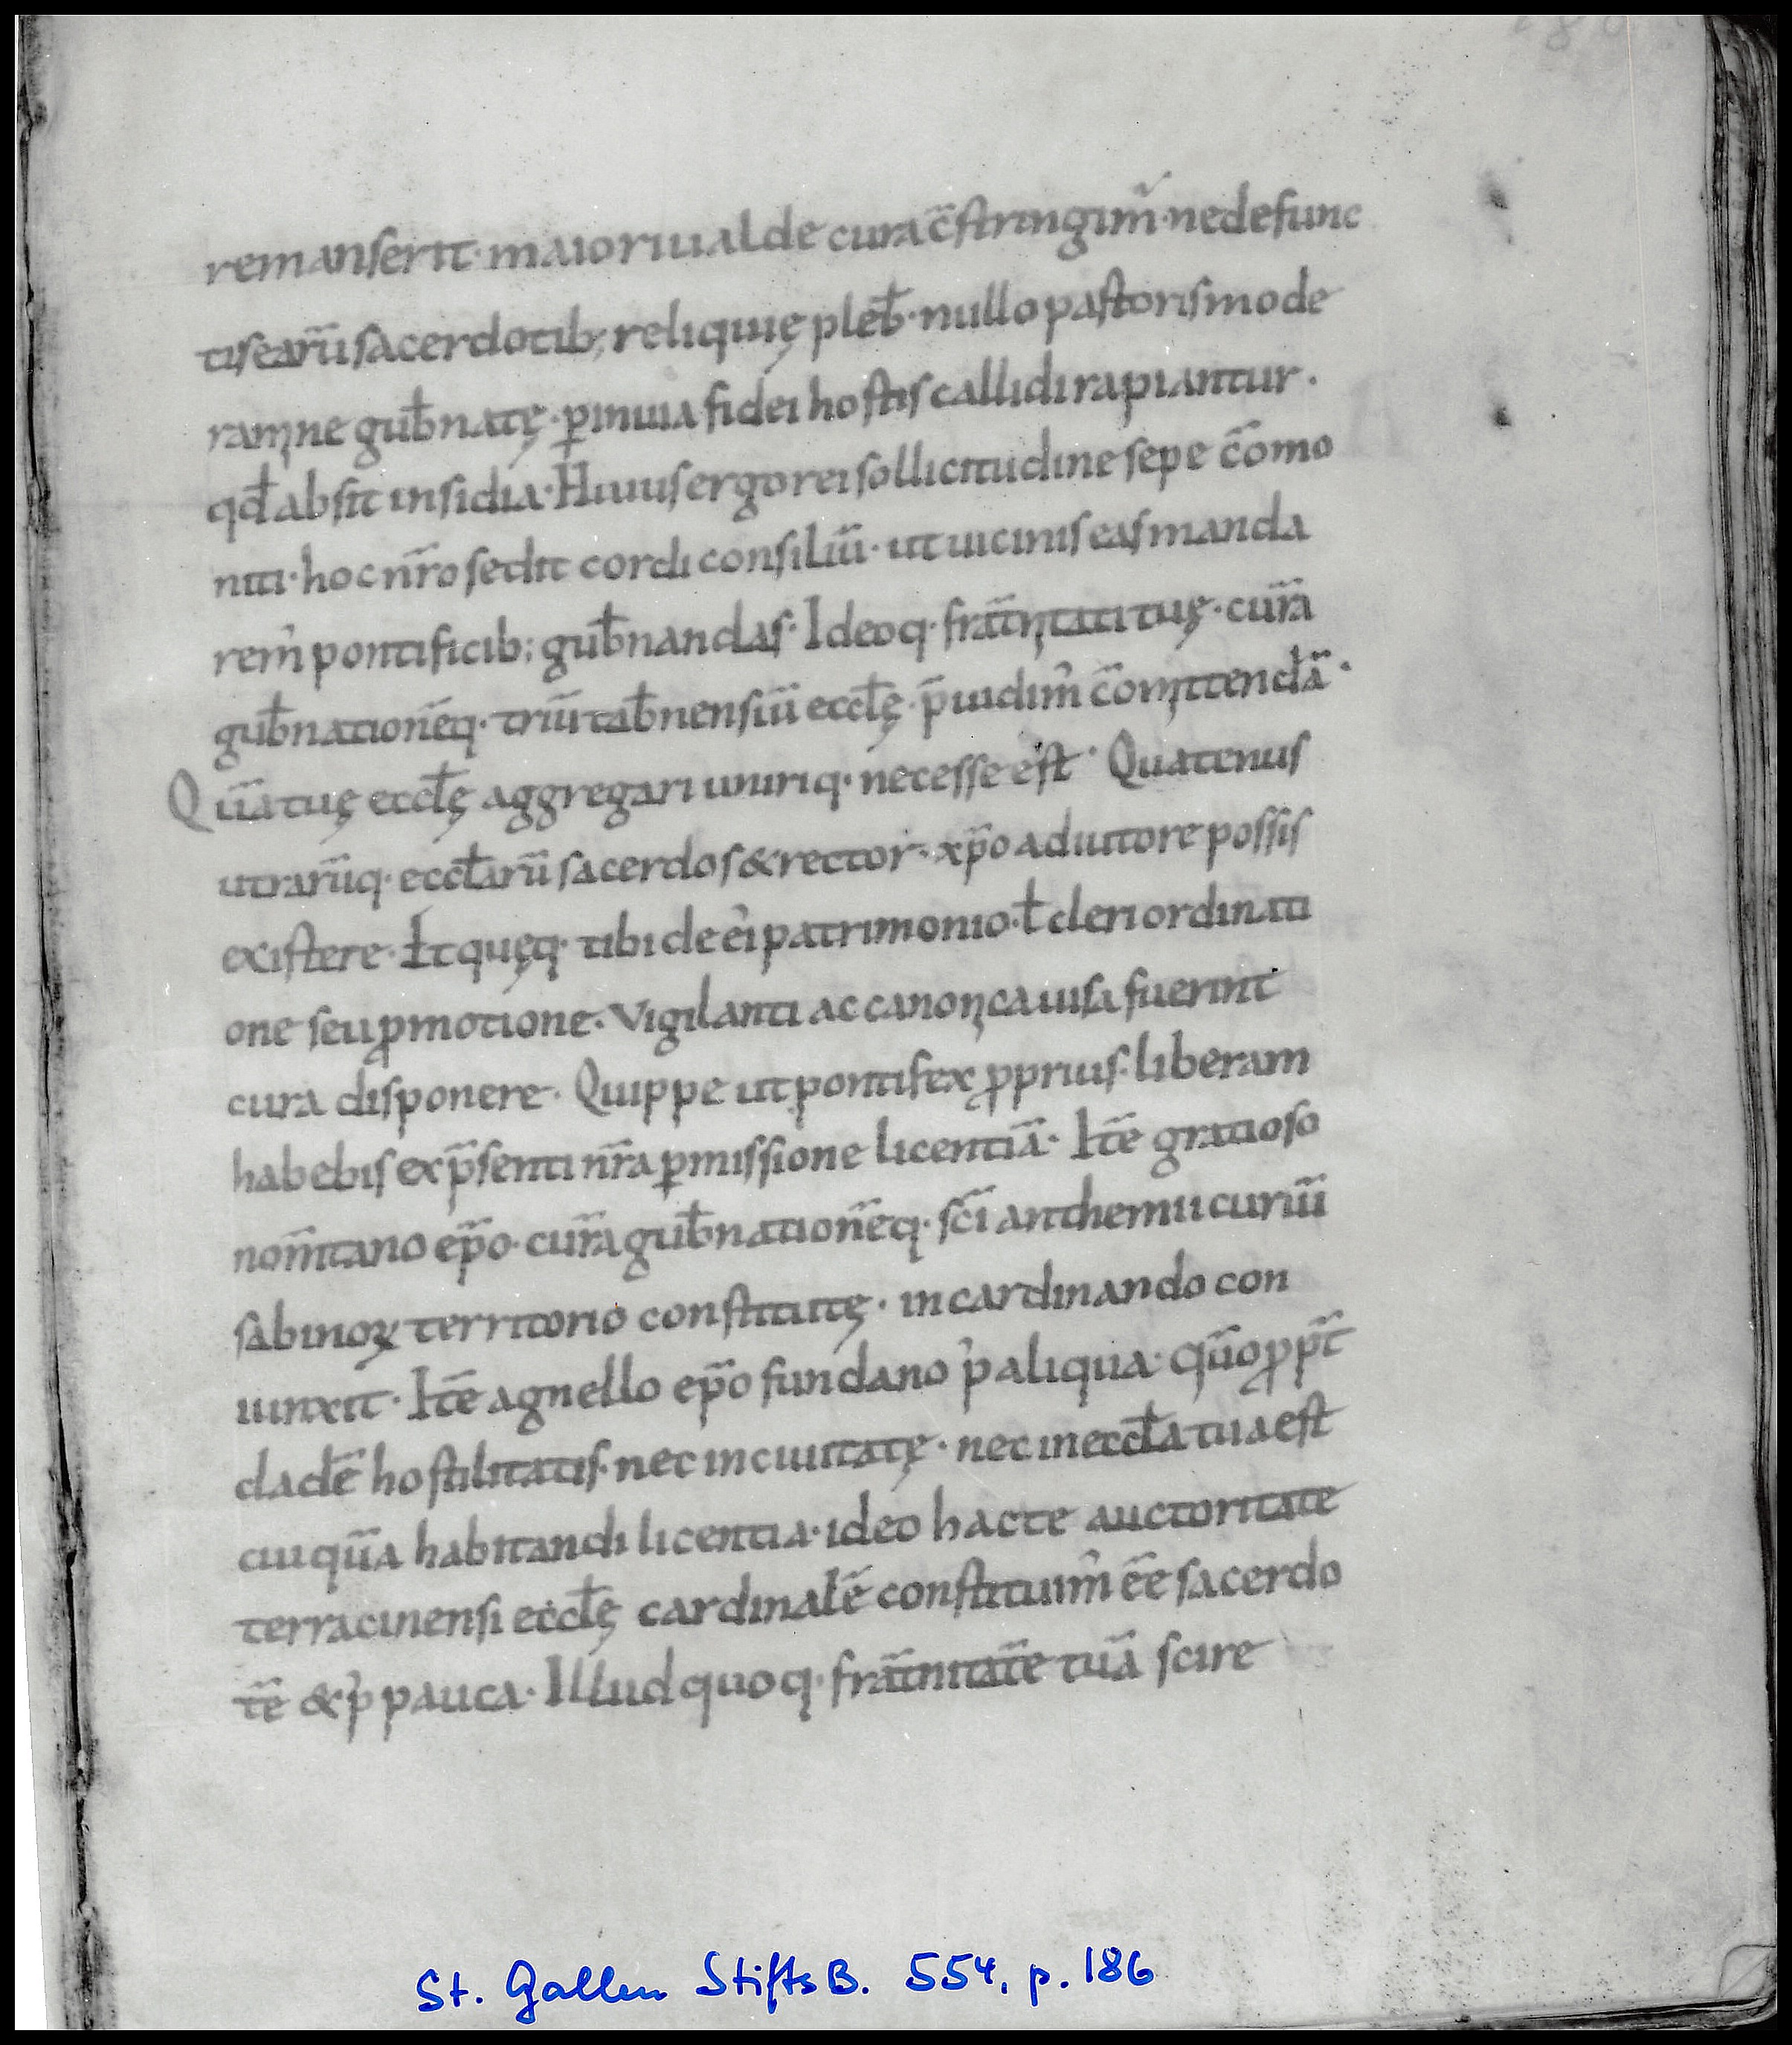 remanserit· maiori ualde cura c̄stringim̄· ne defunc
tis earū sacerdotib; reliquię pleb̄· nullo pastoris mode
ramine gub̄natę· p̲ inuia fidei hostis callidi rapiantur·
qđ absit insidia· Huius ergo rei sollicitudine sepe c̄omo
niti· hoc nr̄o sedit cordi consiliū· ut uicinis eas manda
rem̾ pontificib; gub̄nandas· Ideoq· frat̄nitati tuę· curā
gub̄nationēq· triū tab̄nensiū eccłę· p̄uidim̾ c̄omittendā·
Quā tuę eccłę aggregari uniriq· necesse est· Quatenus
utrarūq· eccłarū sacerdos & rector· xp̄o adiutore possis
existere· Et quęq· tibi de ei̾ patrimonio· ł cleri ordinati
one seu ꝓmotione· Vigilanti ac canonica uisa fuerint
cura disponere· Quippe ut pontifex ꝓprius· liberam
habebis ex p̄senti nr̄a p̲missione licentiā· Itē gratioso
nom̄tano ep̄o· curā gub̄nationēq· sc̄i anthemii curiū
sabinoꝝ territorio constitutę· incardinando con
iunxit· Itē agnello ep̄o fundano p̾ aliqua· qūo ꝓpt̄
cladē hostilitatis· nec in ciuitatę· nec in eccła tua est
cuiquā habitandi licentia· ideo hac te auctoritate
terracinensi eccłę cardinalē constituim̾ ēe sacerdo
tē & p̾ pauca· Illud quoq· frat̄nitatē tuā scire
St. Gallen StiftsB. 554, p. 186